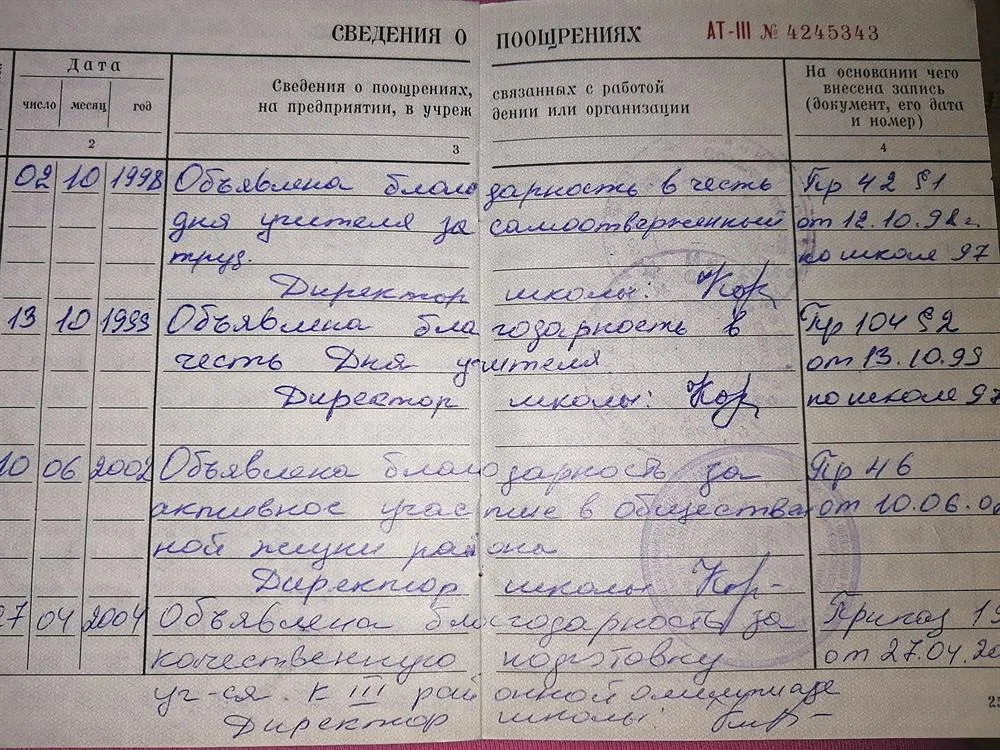 СВЕДЕНИЯ О ПООЩРЕНИЯХ АТ-III № 4245343
Дата
число месяц год
Сведения о поощрениях, связанных с работой
на предприятии, в учреждении или организации
На основании чего
внесена запись
(документ, его дата
и номер)
2 3 4
02 10 1998 Объявлена благодарность в честь Пр 42 §1
дня учителя за самоотверженный от 12.10.98г.
труд. по школе 97
Директор школы: Кор
13 10 1999 Объявлена благодарность в Пр 104 §2
честь Дня учителя от 13.10.99
Директор школы: Кор по школе 97
10 06 2002 Объявлена благодарность за Пр 46
активное участие в обществен от 10.06.0
ной жизни района
Директор школы Кор-
27 04 2004 Объявлена благодарность за Приказ 1
качественную подготовку от 27.04.20
уч-ся к III районной олимпиаде
Директор школы:
25